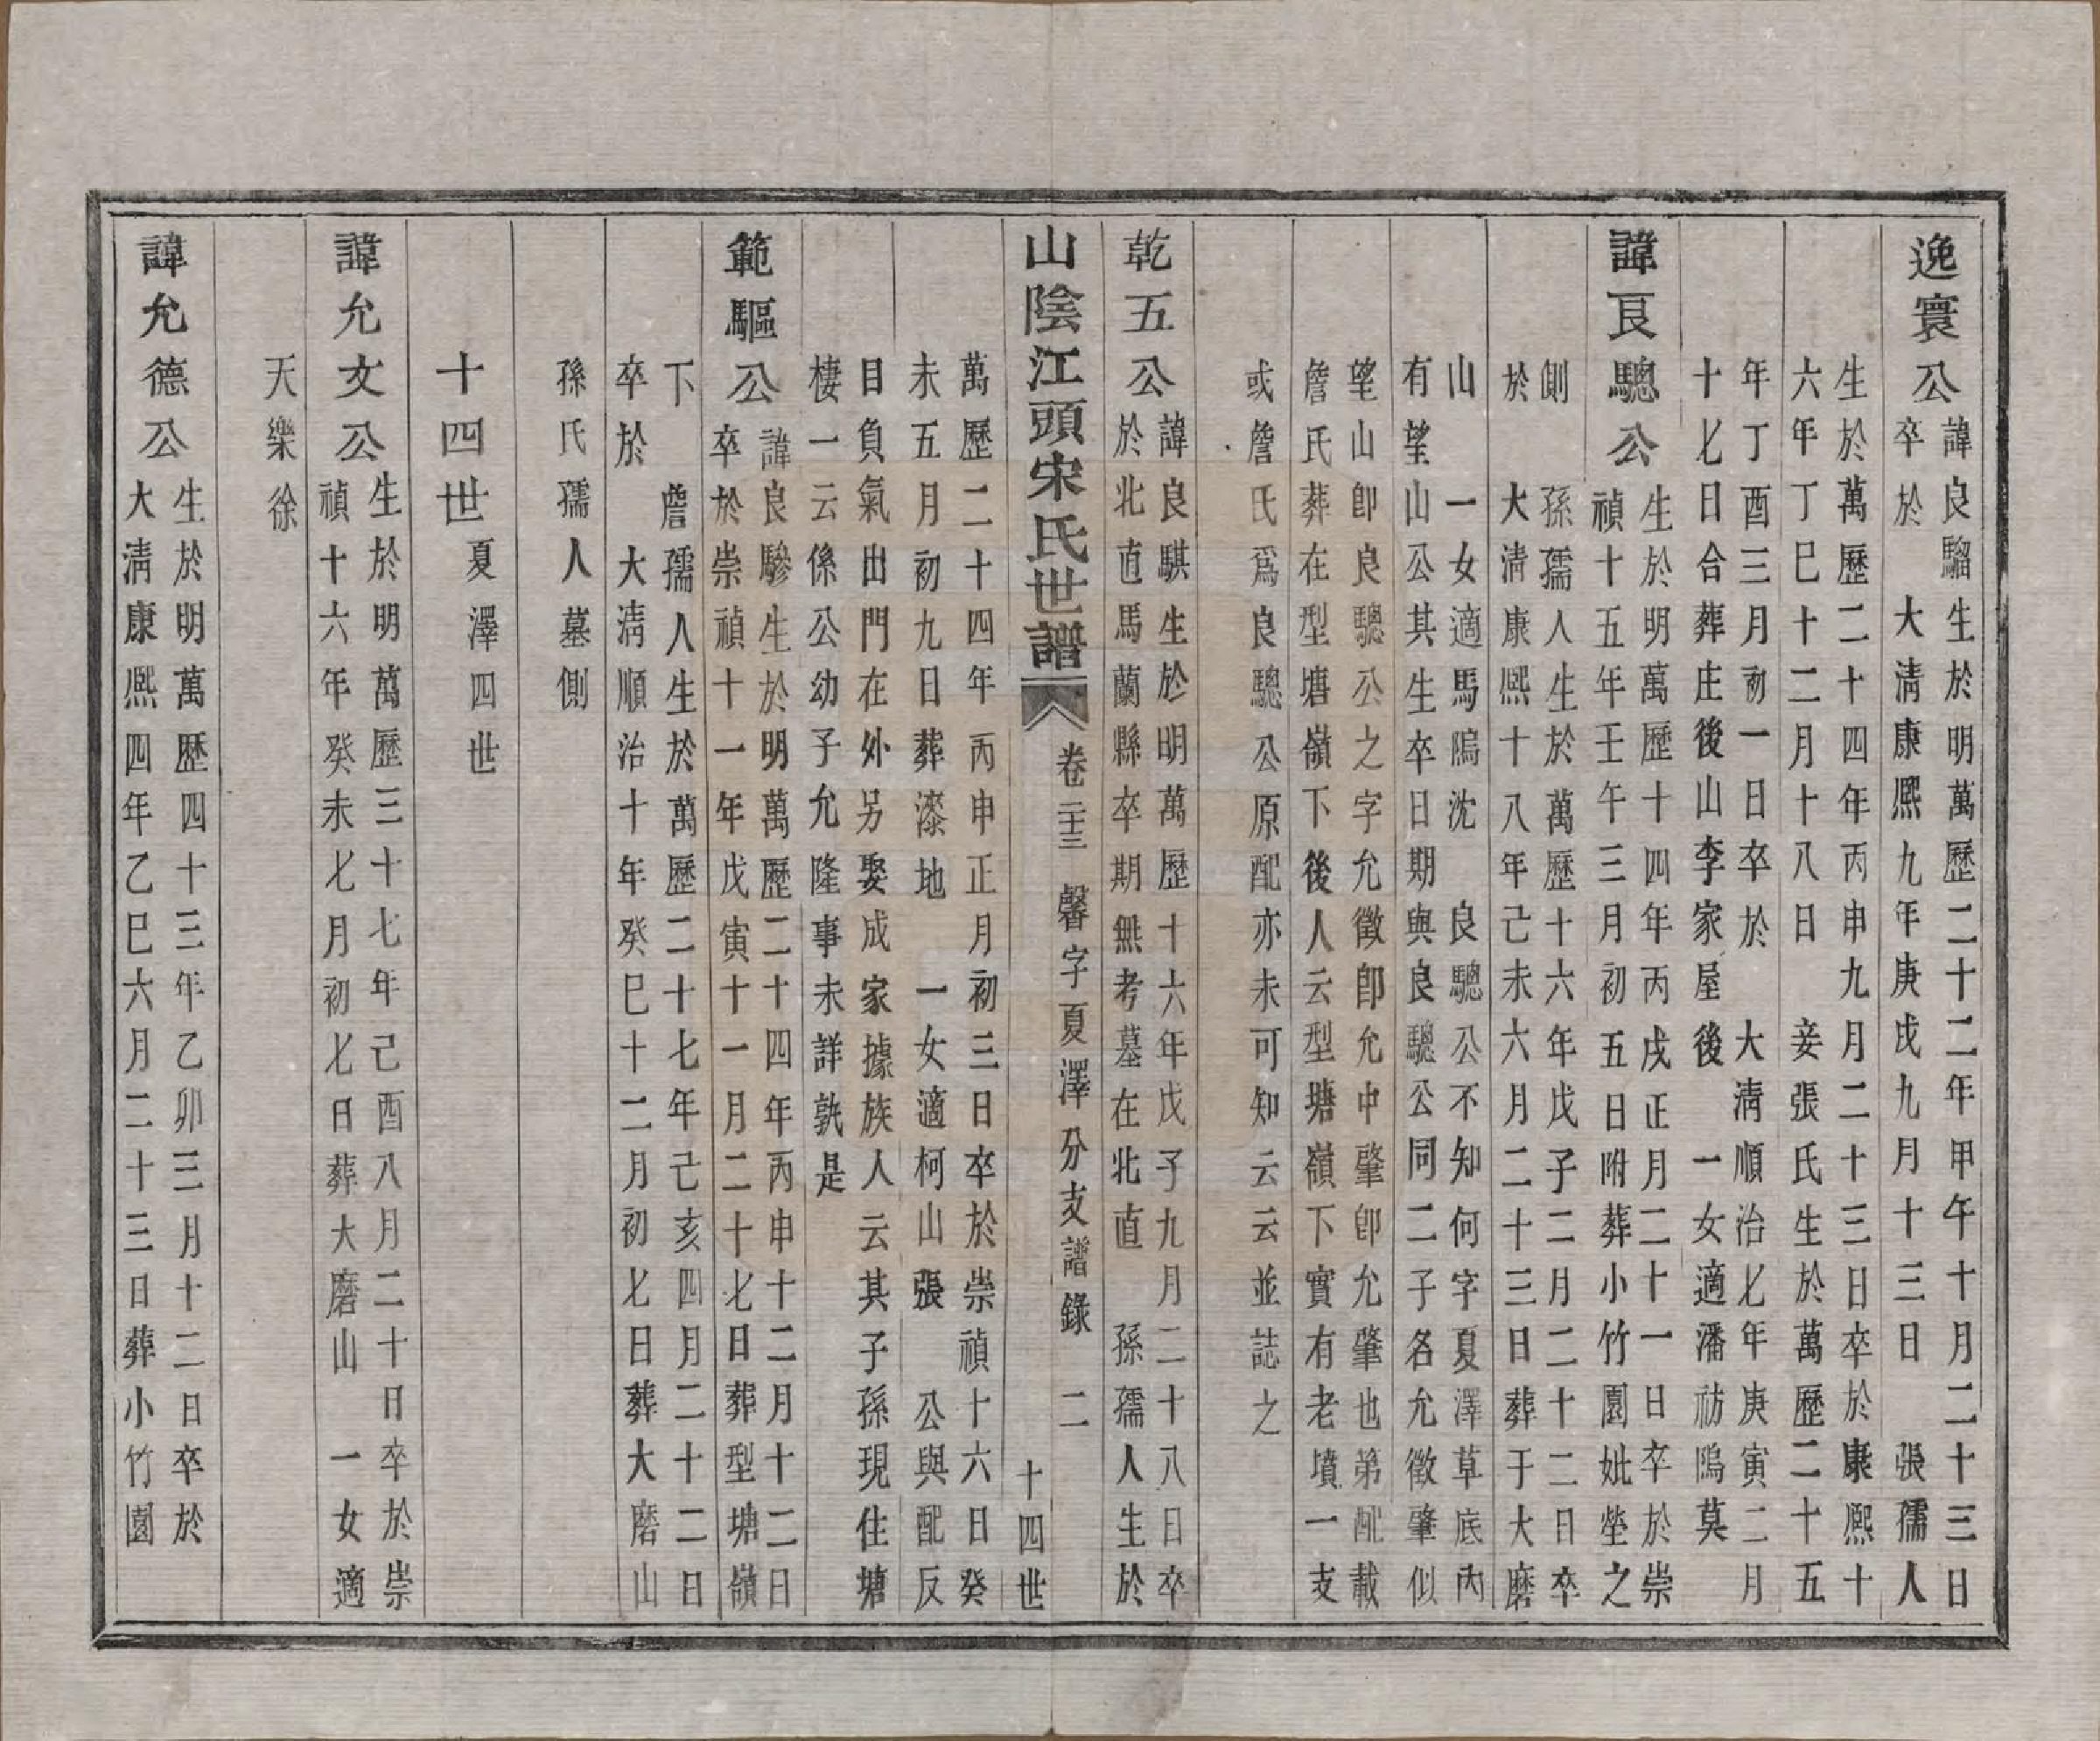 逸寰公
諱良騮生於明萬歷二十二年甲午十月二十三日
卒於　大淸康熙九年庚戌九月十三日　張孺人
生於萬歷二十四年丙申九月二十三日卒於康熙十
六年丁巳十二月十八日　妾張氏生於萬歷二十五
年丁酉三月初一日卒於　大淸順治七年庚寅二月
十七日合葬庄後山李家屋後　一女適潘祊隖莫
諱良驄公
生於明萬歷十四年丙戌正月二十一日卒於崇
禎十五年壬午三月初五日附葬小竹園妣塋之
側　孫孺人生於萬歷十六年戊子二月二十二日卒
於　大淸康熙十八年己未六月二十三日葬于大磨
山　一女適馬隖沈　良驄公不知何字夏澤草底內
有望山公其生卒日期與良驄公同二子名允徵肇似
望山卽良驄公之字允徵卽允中肇卽允肇也第配載
詹氏葬在型塘嶺下後人云型塘嶺下實有老墳一支
或詹氏爲良驄公原配亦未可知云云並誌之
乾五公
諱良騏生於明萬歷十六年戊子九月二十八日卒
於北直馬蘭縣卒期無考墓在北直　孫孺人生於
山陰江頭宋氏世譜　卷二十三　馨字夏澤分支譜錄　二　十四世
萬歷二十四年丙申正月初三日卒於崇禎十六日癸
未五月初九日葬漆地　一女適柯山張　公與配反
目負氣出門在外另娶成家據族人云其子孫現住塘
棲一云係公幼子允隆事未詳孰是
範驅公
諱良驂生於明萬歷二十四年丙申十二月十二日
卒於崇禎十一年戊寅十一月二十七日葬型塘嶺
下　詹孺人生於萬歷二十七年己亥四月二十二日
卒於　大淸順治十年癸巳十二月初七日葬大磨山
孫氏孺人墓側
十四世夏澤四世
諱允文公
生於明萬歷三十七年己酉八月二十日卒於崇
禎十六年癸未七月初七日葬大磨山　一女適
天樂徐
諱允德公
生於明萬歷四十三年乙卯三月十二日卒於
大淸康熙四年乙巳六月二十三日葬小竹園